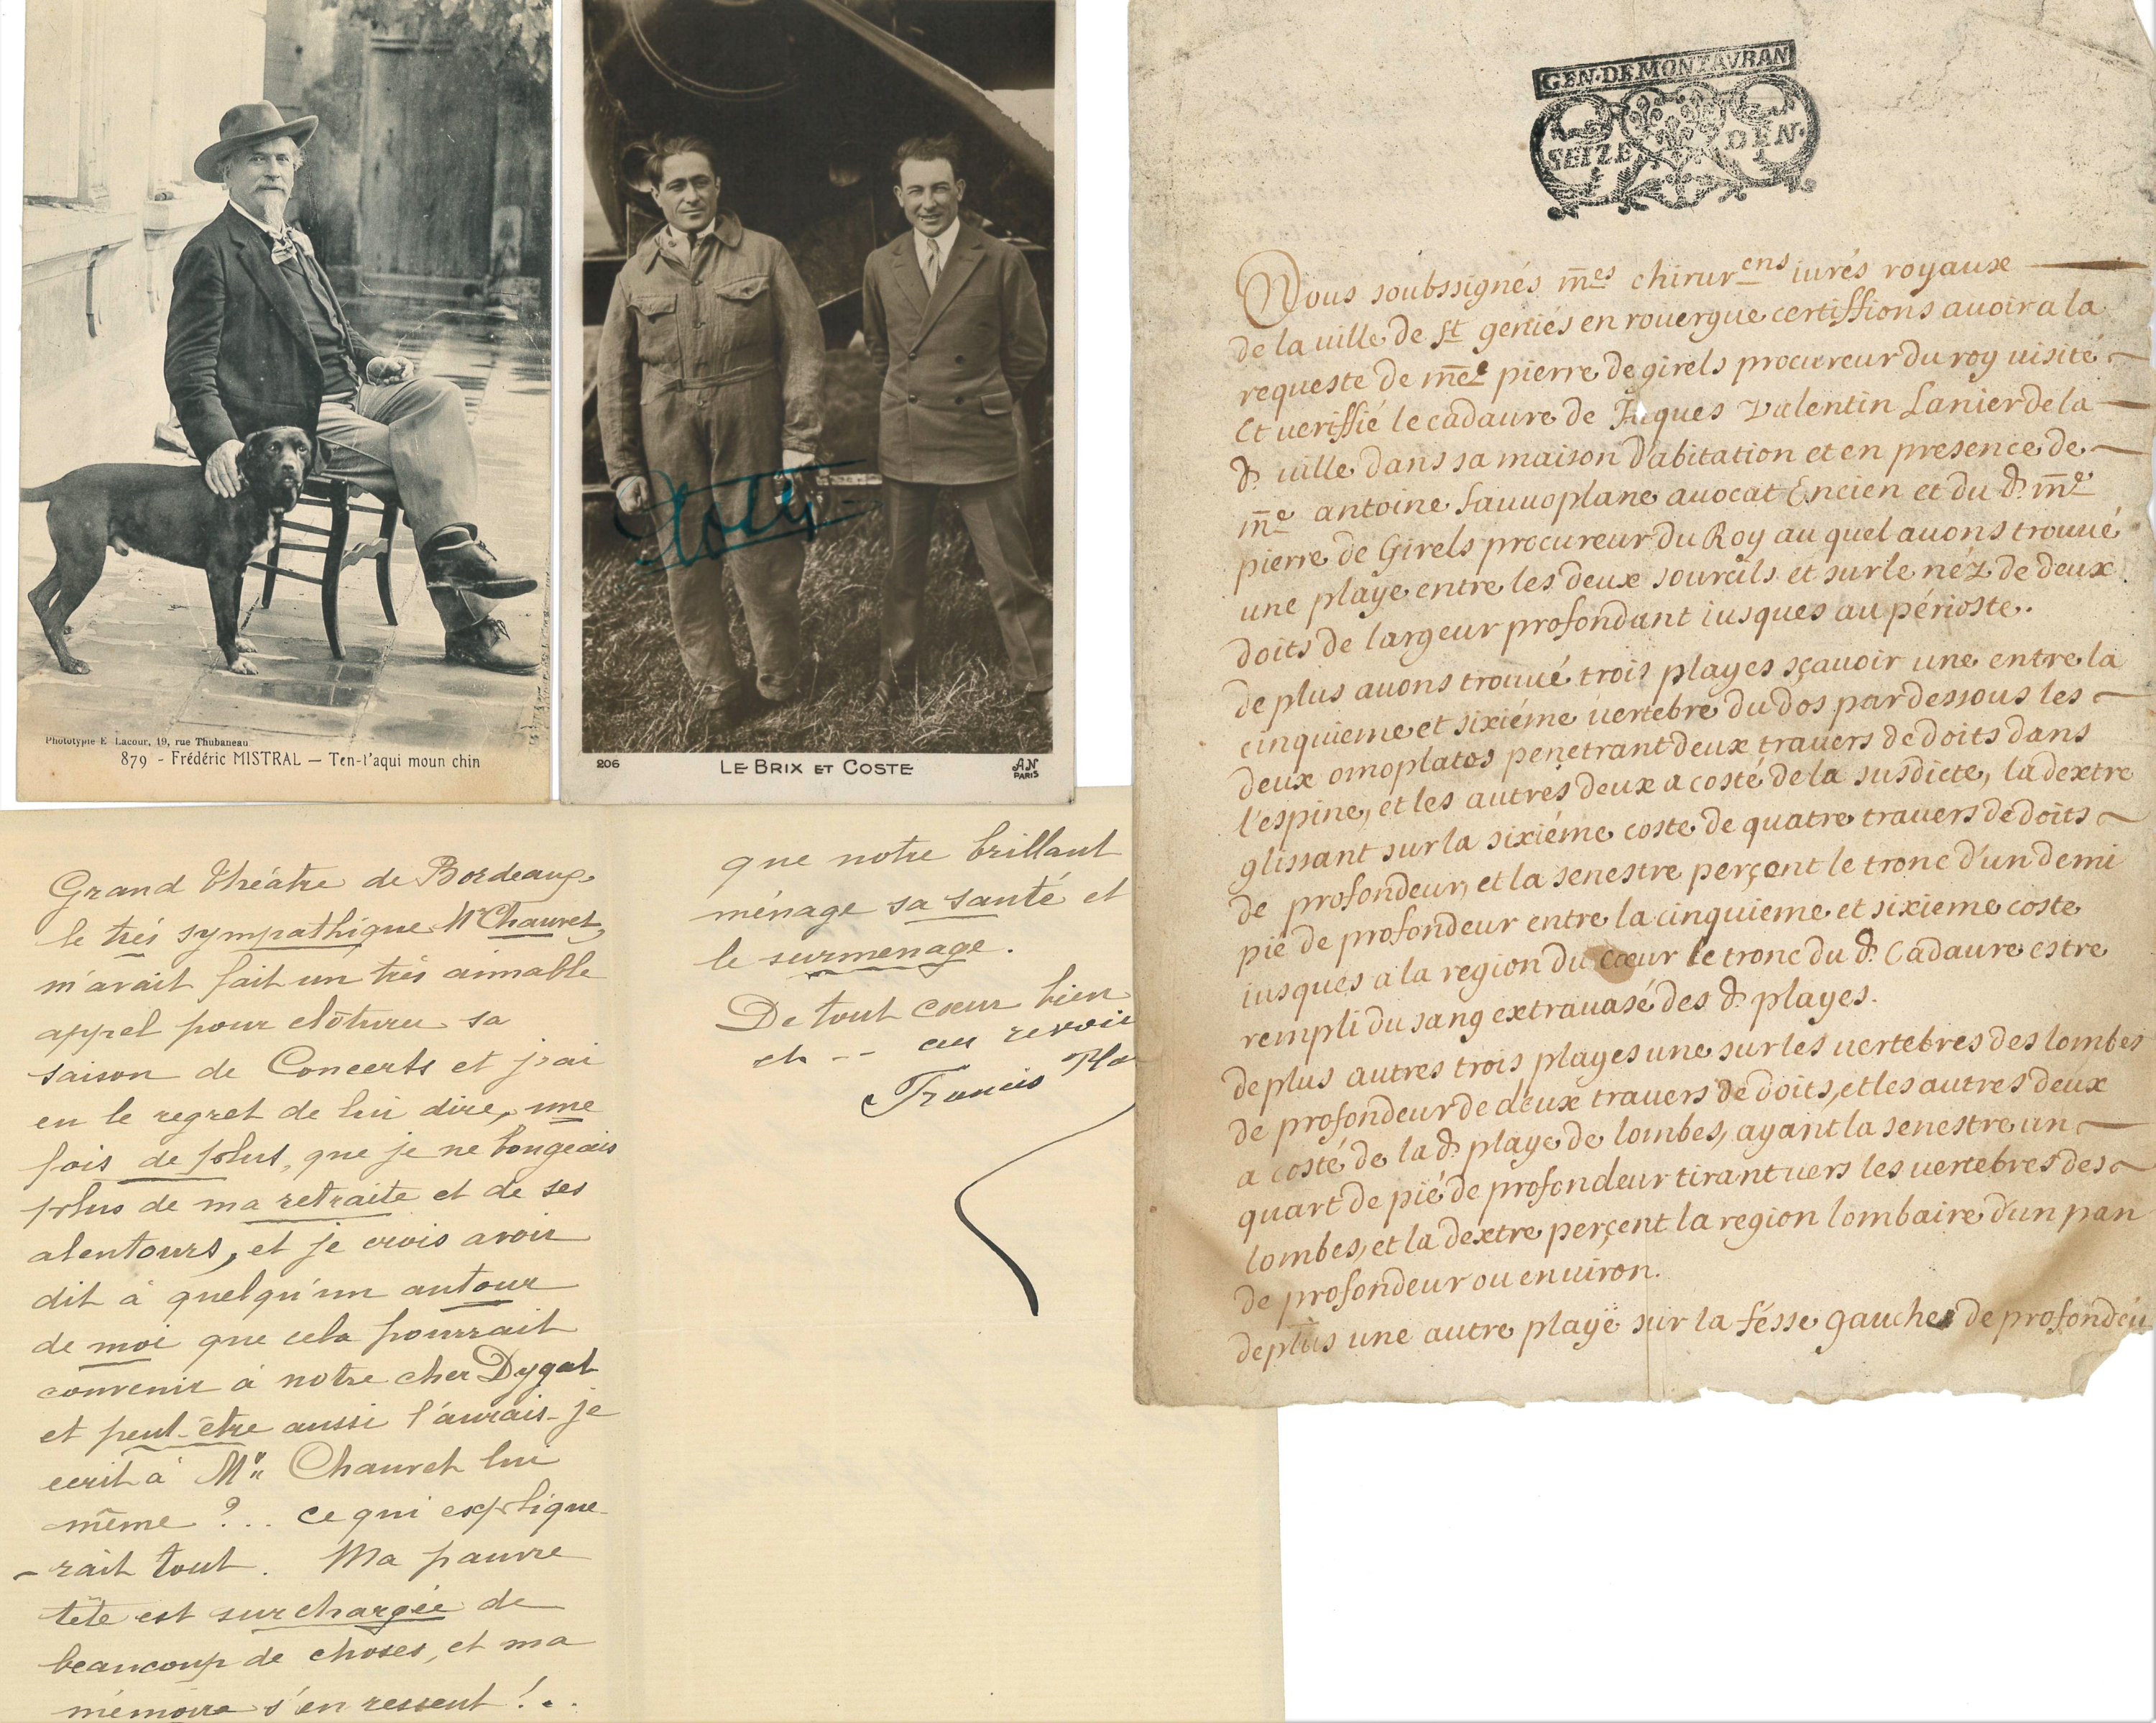 Phototypie E. Lacour, 19, rue Thubaneau
879 - Frédéric MISTRAL — Ten-t'aqui moun chin
206
LE BRIX ET COSTE
A.N.
PARIS
Grand Théâtre de Bordeaux,
le très sympathique Mr Chauvet,
m'avait fait un très aimable
appel pour clôturer sa
saison de Concerts et j'ai
eu le regret de lui dire, une
fois de plus, que je ne bougeais
plus de ma retraite et de ses
alentours, et je crois avoir
dit à quelqu'un autour
de moi que cela pourrait
convenir à notre cher Dygat
et peut-être aussi l'aurais-je
écrit à Mr Chauvet lui
même ?.. ce qui explique
-rait tout. Ma pauvre
tête est surchargée de
beaucoup de choses, et ma
mémoire s'en ressent !..
que notre brillant
ménage sa santé et
le surmenage.
De tout cœur bien
et -- au revoir
Francis Pla
GEN·DE MONTAVBAN
SEIZE DEN·
Nous soubssignés m̃es chirurens iurés royaux
de la uille de St geniés en rouergue certiffions auoir a la
requeste de m̃e pierre de girels procureur du roy uisité
Et ueriffié le cadaure de Jaques Valentin Lanier de la
d. uille dans sa maison d'abitation et en presence de
m̃e antoine Sauuoplane auocat Encien et du d. m̃e
pierre de Girels procureur du Roy au quel auons trouué
une playe entre les deux sourcils et sur le néz de deux
doits de largeur profondant iusques au périoste.
de plus auons trouué trois playes sçauoir une entre la
cinquieme et sixiéme uertebre du dos par dessous les
deux omoplatos penetrant deux trauers de doits dans
l'espine, et les autres deux a costé de la susdicte, la dextre
glissant sur la sixiéme coste de quatre trauers de doits
de profondeur, et la senestre perçent le tronc d'un demi
pié de profondeur entre la cinquieme et sixieme coste
iusques a la region du cœur le tronc du d. Cadaure estre
rempli du sang extrauasé des d. playes.
de plus autres trois playes une sur les uertebres des lombes
de profondeur de deux trauers de doits, et les autres deux
a costé de la d. playe de lombes, ayant la senestre un
quart de pié de profondeur tirant uers les uertebres des
lombes, et la dextre perçent la region lombaire d'un pan
de profondeur ou enuiron.
de plus une autre playe sur la fésse gauche de profondeu